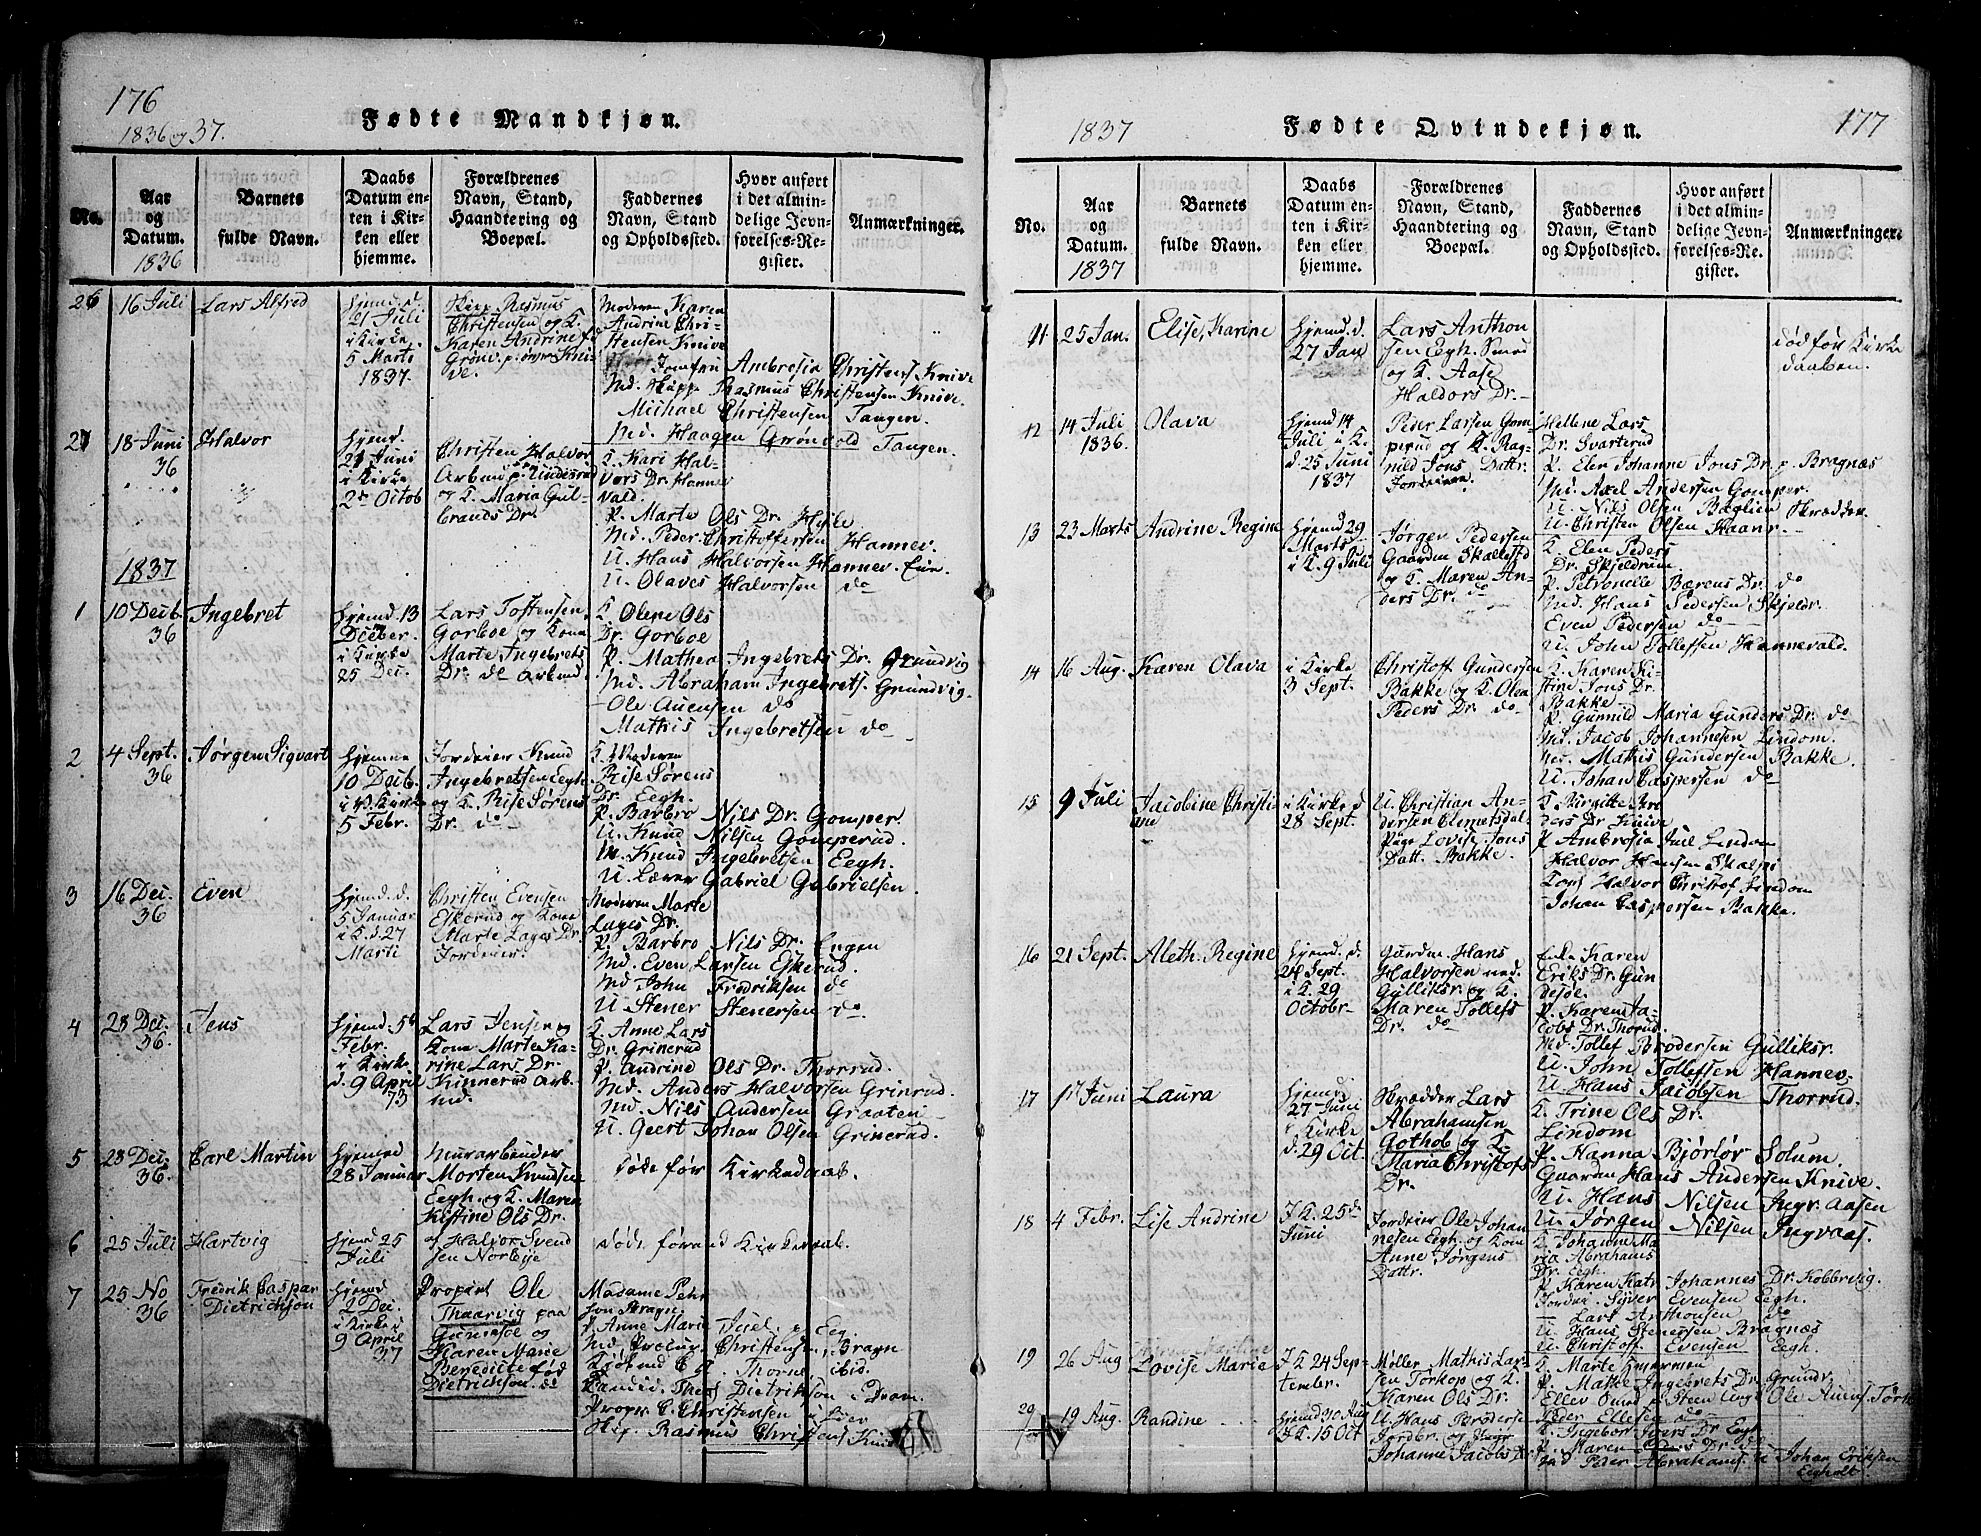 176
1836 og 37.
Fødte Mandkjøn.
No.
Aar og Datum.
1836
Barnets fulde Navn.
Daabs Datum enten i Kirken eller hjemme.
Forældrenes Navn, Stand, Haandtering og Boepæl.
Faddernes Navn, Stand og Opholdssted.
Hvor anført i det almindelige Jevnførelses-Register.
Anmærkninger.
26
16 Juli
Lars Alfred
hjemd. d.
21 Juli
i Kirke
5 Marts
1837.
Rasmus
Christensen og K.
Karen Andrine
Moderen Karen
Andrine Chri-
stensen Knive
Jomfru Ambrosia Christens Knive
Md. Rasmus Christensen Knive.
Michael Christensen Tangen
Md. Haagen Grønvold Tangen.
27
18 Juni
36
Halvor
hjemd.
21 Juni
i Kirke
2 Octob
Christen Halvor
og K. Maria Gul-
brands Dr.
K. Kari Hal-
vors Dr. Hannev
vald.
P. Marte Ols Dr. Hyle
Md. Peder Christoffersen Hannev.
U. Hans Halvorsen Hannev. Eie.
U. Olaves Halvorsen do
1837
1
10 Decb.
36
Ingebret
hjemd. 13
Decber.
i Kirke
25 Dec.
Lars Toftensen
Gorboe og Kone
Marte Ingebrets
Dr. do Arbmd
K. Olene Ols
Dr. Gorboe
P. Mathea Ingebrets Dr. Grundvig
Md. Abraham Ingebrets. Grundvig.
Ole Auensen do
Mathis Ingebretsen do
2
4 Sept.
36
Jørgen Sigvart
hjemme
10 Decb.
i Kirke
5 Febr.
Jordeier Knud
Ingebretsen Eegh.
og K. Rise Sørens
Dr. do
K. Moderen
Rise Sørens
Dr. Eegh.
P. Barbro Nils Dr. Gomper.
U. Knud Nilsen Gomperud.
M. Knud Ingebretsen Eegh.
U. Lærer Gabriel Gabrielsen
3
16 Dec.
36
Even
hjemd. d.
5 Januar
i K. d. 27
Marti
Christen Evensen
Eskerud og Kone
Marte Lages Dr.
Jordeier.
Moderen Marte
Lages Dr.
P. Barbro Nils Dr. Engen
Md. Even Larsen Eskerud.
Md John Fredriksen do
U Stener Stenersen do
4
28 Dec.
36.
Jens
hjemd. 5
Febr.
i Kirke
d. 9 April
Lars Jensen og
Kone Marte Ka-
rine Lars Dr.
Kinnerud Arb.
md.
K. Anne Lars
Dr. Grinerud
P. Andrine Ols Dr. Thorrud.
Md. Anders Halvorsen Grinrud.
Md. Nils Andersen Graaten
U. Geert Johan Olsen Grinerud.
5
28 Dec.
36.
Carl Martin
hjemd
28 Januar
Morten Knudsen
Eegh. og K. Maren
Kistine Ols Dr.
Døde før Kirkedaab.
6
25 Juli
Hartvig
hjemd 25
Juli
af Halvor Svend
sen Norbye
7
25 No
36
Fredrik Caspar
Dietrichson
hjemd
2 Dec.
i Kirke d
9 April
37
Propriet Ole
Thaarvig paa
Gunnesøe og
Karen Marie
Benedicte fød
Dietrichson. do
Madame Pehr
son Bragn.
P. Anne Marie Juel Eeg.
Christensen, Bragn
Thorne, ibid.
Candid. Ths. Dietrikson Dram.
Propr. C. Christensen i Lier
Rasmus Christens Knive
1837
Fødte Qvindekjøn.
177
No.
Aar og Datum.
1837
Barnets fulde Navn.
Daabs Datum enten i Kirken eller hjemme.
Forældrenes Navn, Stand, Haandtering og Boepæl.
Faddernes Navn, Stand og Opholdssted.
Hvor anført i det almindelige Jevnførelses-Register.
Anmærkninger.
11
25 Jan.
Elise, Karine
hjemd. d.
27 Jan
Lars Anthon
sen Eegh. Smed
og K. Aase
Haldors Dr.
død før Kirke
daaben.
12
14 Juli
1836.
Olava
hjemd 14
Juli i K.
d. 25 Juni
1837
Peder Larsen Gom-
perud og K. Rag-
nild Jons Dattr.
Hellene Lars
Dr. Svarterud
P. Elen Johanne Jons Dr. p. Bragnæs
Md. Axel Andersen Gomper.
U. Nils Olsen Baglien Skrædder.
U. Christen Olsen Haanr.
13
23 Marts
Andrine Regine
hjemd 29
Marts
i K. 9 Juli
Jørgen Pedersen
Gaardm Skallestd
og K. Maren An-
ders Dr. do
K. Elen Peders
Dr. Skjeldrum.
P. Petronelle Bærens Dr. do
Md. Hans Pedersen Skjeldr.
Even Pedersen do
U. John Tollefsen Hannevald.
14
16 Aug.
Karen Olava
i Kirke
3 Sept.
Christoff Gundersen
Bakke og K. Olea
Peders Dr. do
K. Karen Ki-
stine Jons Dr.
Bakke
P. Gunnild Maria Gunders Dr. do
Md. Jacob Johannesen Lindom.
Md. Mathis Gundersen Bakke.
U. Johan Caspersen do
15
9 Juli
Jacobine Christi-
ane
i Kirke d
28 Sept.
U. Christian An-
dersen Clemetsdal
Pige Lovise Jons
Datt. Bakke.
K. Birgitte An-
ders Dr Knive
P Ambrosia Juel Lindom
Halvor Hansen Skalps
Tons Halvor Christof Lindom
Johan Caspersen Bakke.
16
21 Sept.
Aleth. Regine
hjemd. d.
24 Sept.
i K. 29
Octobr
Gaardm. Hans
Halvorsen ned.
Gulliksr. og K.
Maren Tollefs
Dr. do
Enke Karen
Eriks Dr. Gun
desøe.
P. Karen Ja-
cobs Dr. Thorrud.
Md Tollef Brodersen Gulliksr.
U. John Tollefsen Hannev.
U. Hans Jacobsen Thorrud.
17
17 Juni
Laura
hjemd.
27 Juni
i Kirke
d. 29 Oct.
Skrædder Lars
Abrahamsen
Gothob og K.
Maria Christofs
Dr.
K. Trine Ols Dr.
Lindom
P. Hanna Bjørløv Solum.
Gaardm Hans Andersen Knive.
U. Hans Nilsen Ingv. Aasen
U. Jørgen Nilsen Ingvaas.
18
4 Febr.
Lise Andrine
I K. 25de
Juni
Jordeier Ole Johan
nesen Eegh. og Kone
Anne Jørgens
Dattr.
K. Johanne Ma
ria Abrahams
Dr. Eegh.
P. Karen Katr. Johannes Dr. Kobbrvig.
Jordei. Syver Evensen Eegh.
Lars Anthonsen do
U. Hans Stenersen Bragnæs
U. Christoff. Evensen Eegh.
19
26 Aug
Lovise Marie
I K. 24 Sep-
tember.
Møller Mathis Lar-
sen Torkop og K.
Karen Ols Dr.
K. Marte
P. Mathe Ingebrets Dr. Grundv.
Peder Ellesen do
20
19 Aug.
Randine
hjemd 30 Aug
I K. 15 Oct
U. Hans Brødersen
Jordbr. og
Johanne Jacobs Dr
K. Ingebor Ivers Dr Egh
P. Maren Peders Dr do
Md Peder Abrahams. U Johan Eriksen
Eegholt